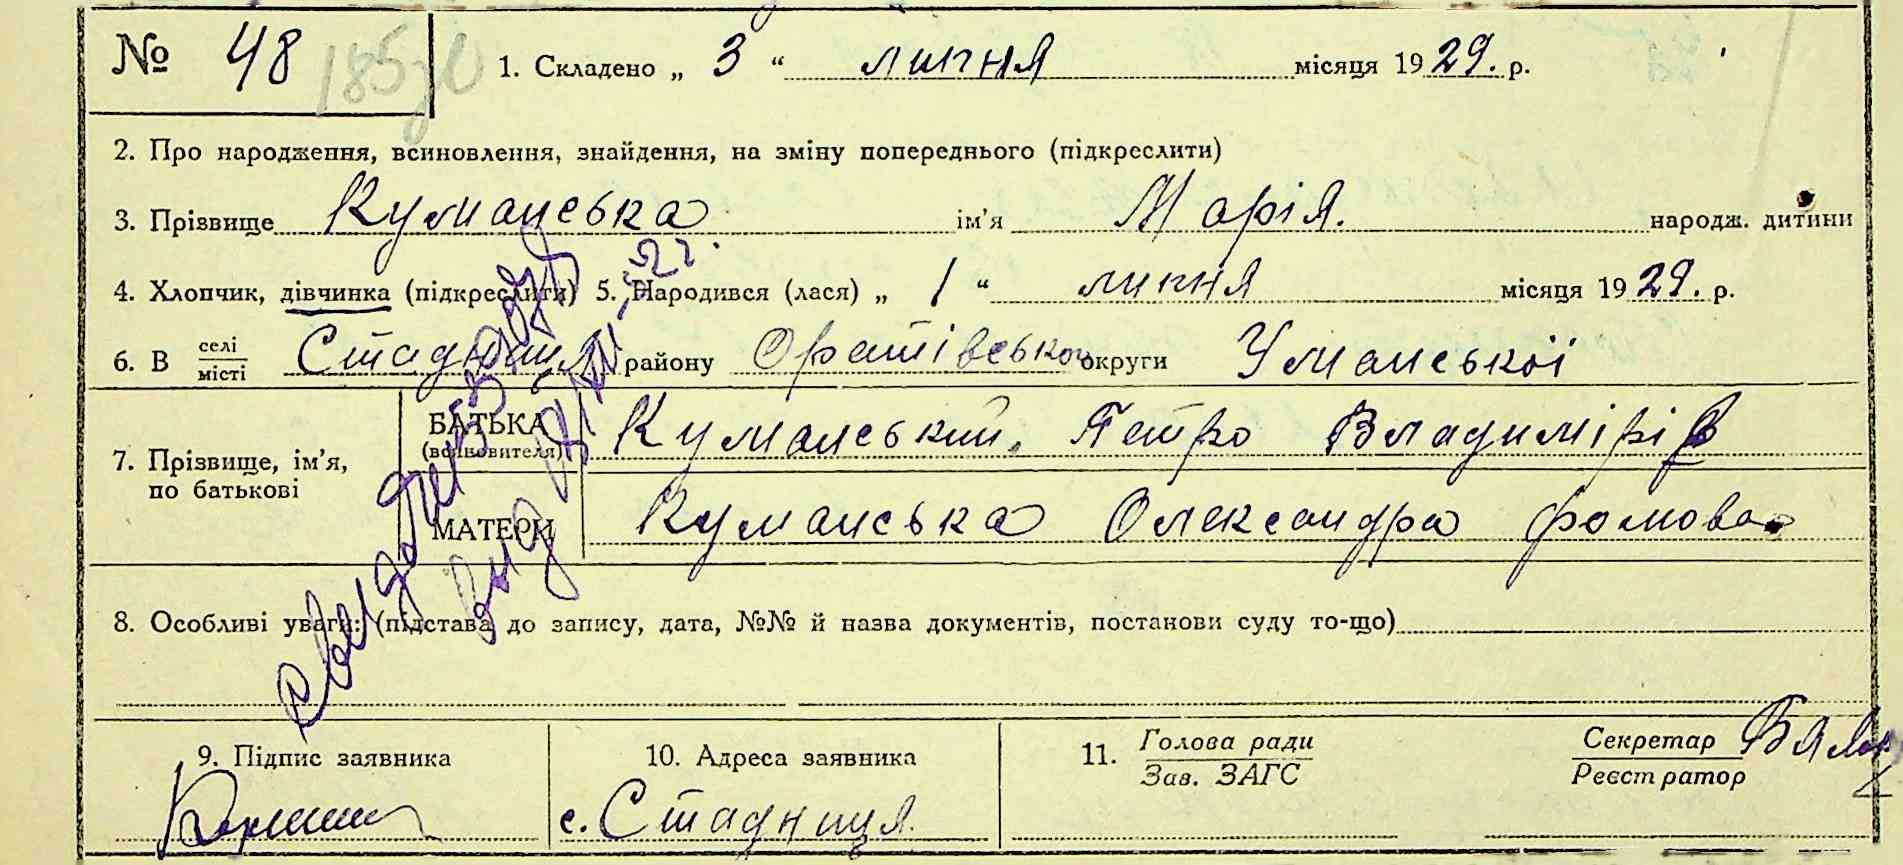 № 48 185
1. Складено „ 3 “ липня місяця 1929. р.
2. Про народження, всиновлення, знайдення, на зміну попереднього (підкреслити)
3. Прізвище Куманська ім’я Марія. народж. дитини
4. Хлопчик, дівчинка (підкреслити) 5. Народився (лася) „ 1 “ липня місяця 1929. р.
6. В селі/місті Стадниця району Оратівської округи Уманської
7. Прізвище, ім’я, по батькові
БАТЬКА (всиновителя) Куманський, Петро Владимірів
МАТЕРИ Куманська Олександра Фомова
8. Особливі уваги: (підстава до запису, дата, №№ й назва документів, постанови суду то-що)
9. Підпис заявника
10. Адреса заявника
с. Стадниця.
11. Голова ради
Зав. ЗАГС
Секретар
Реєстратор